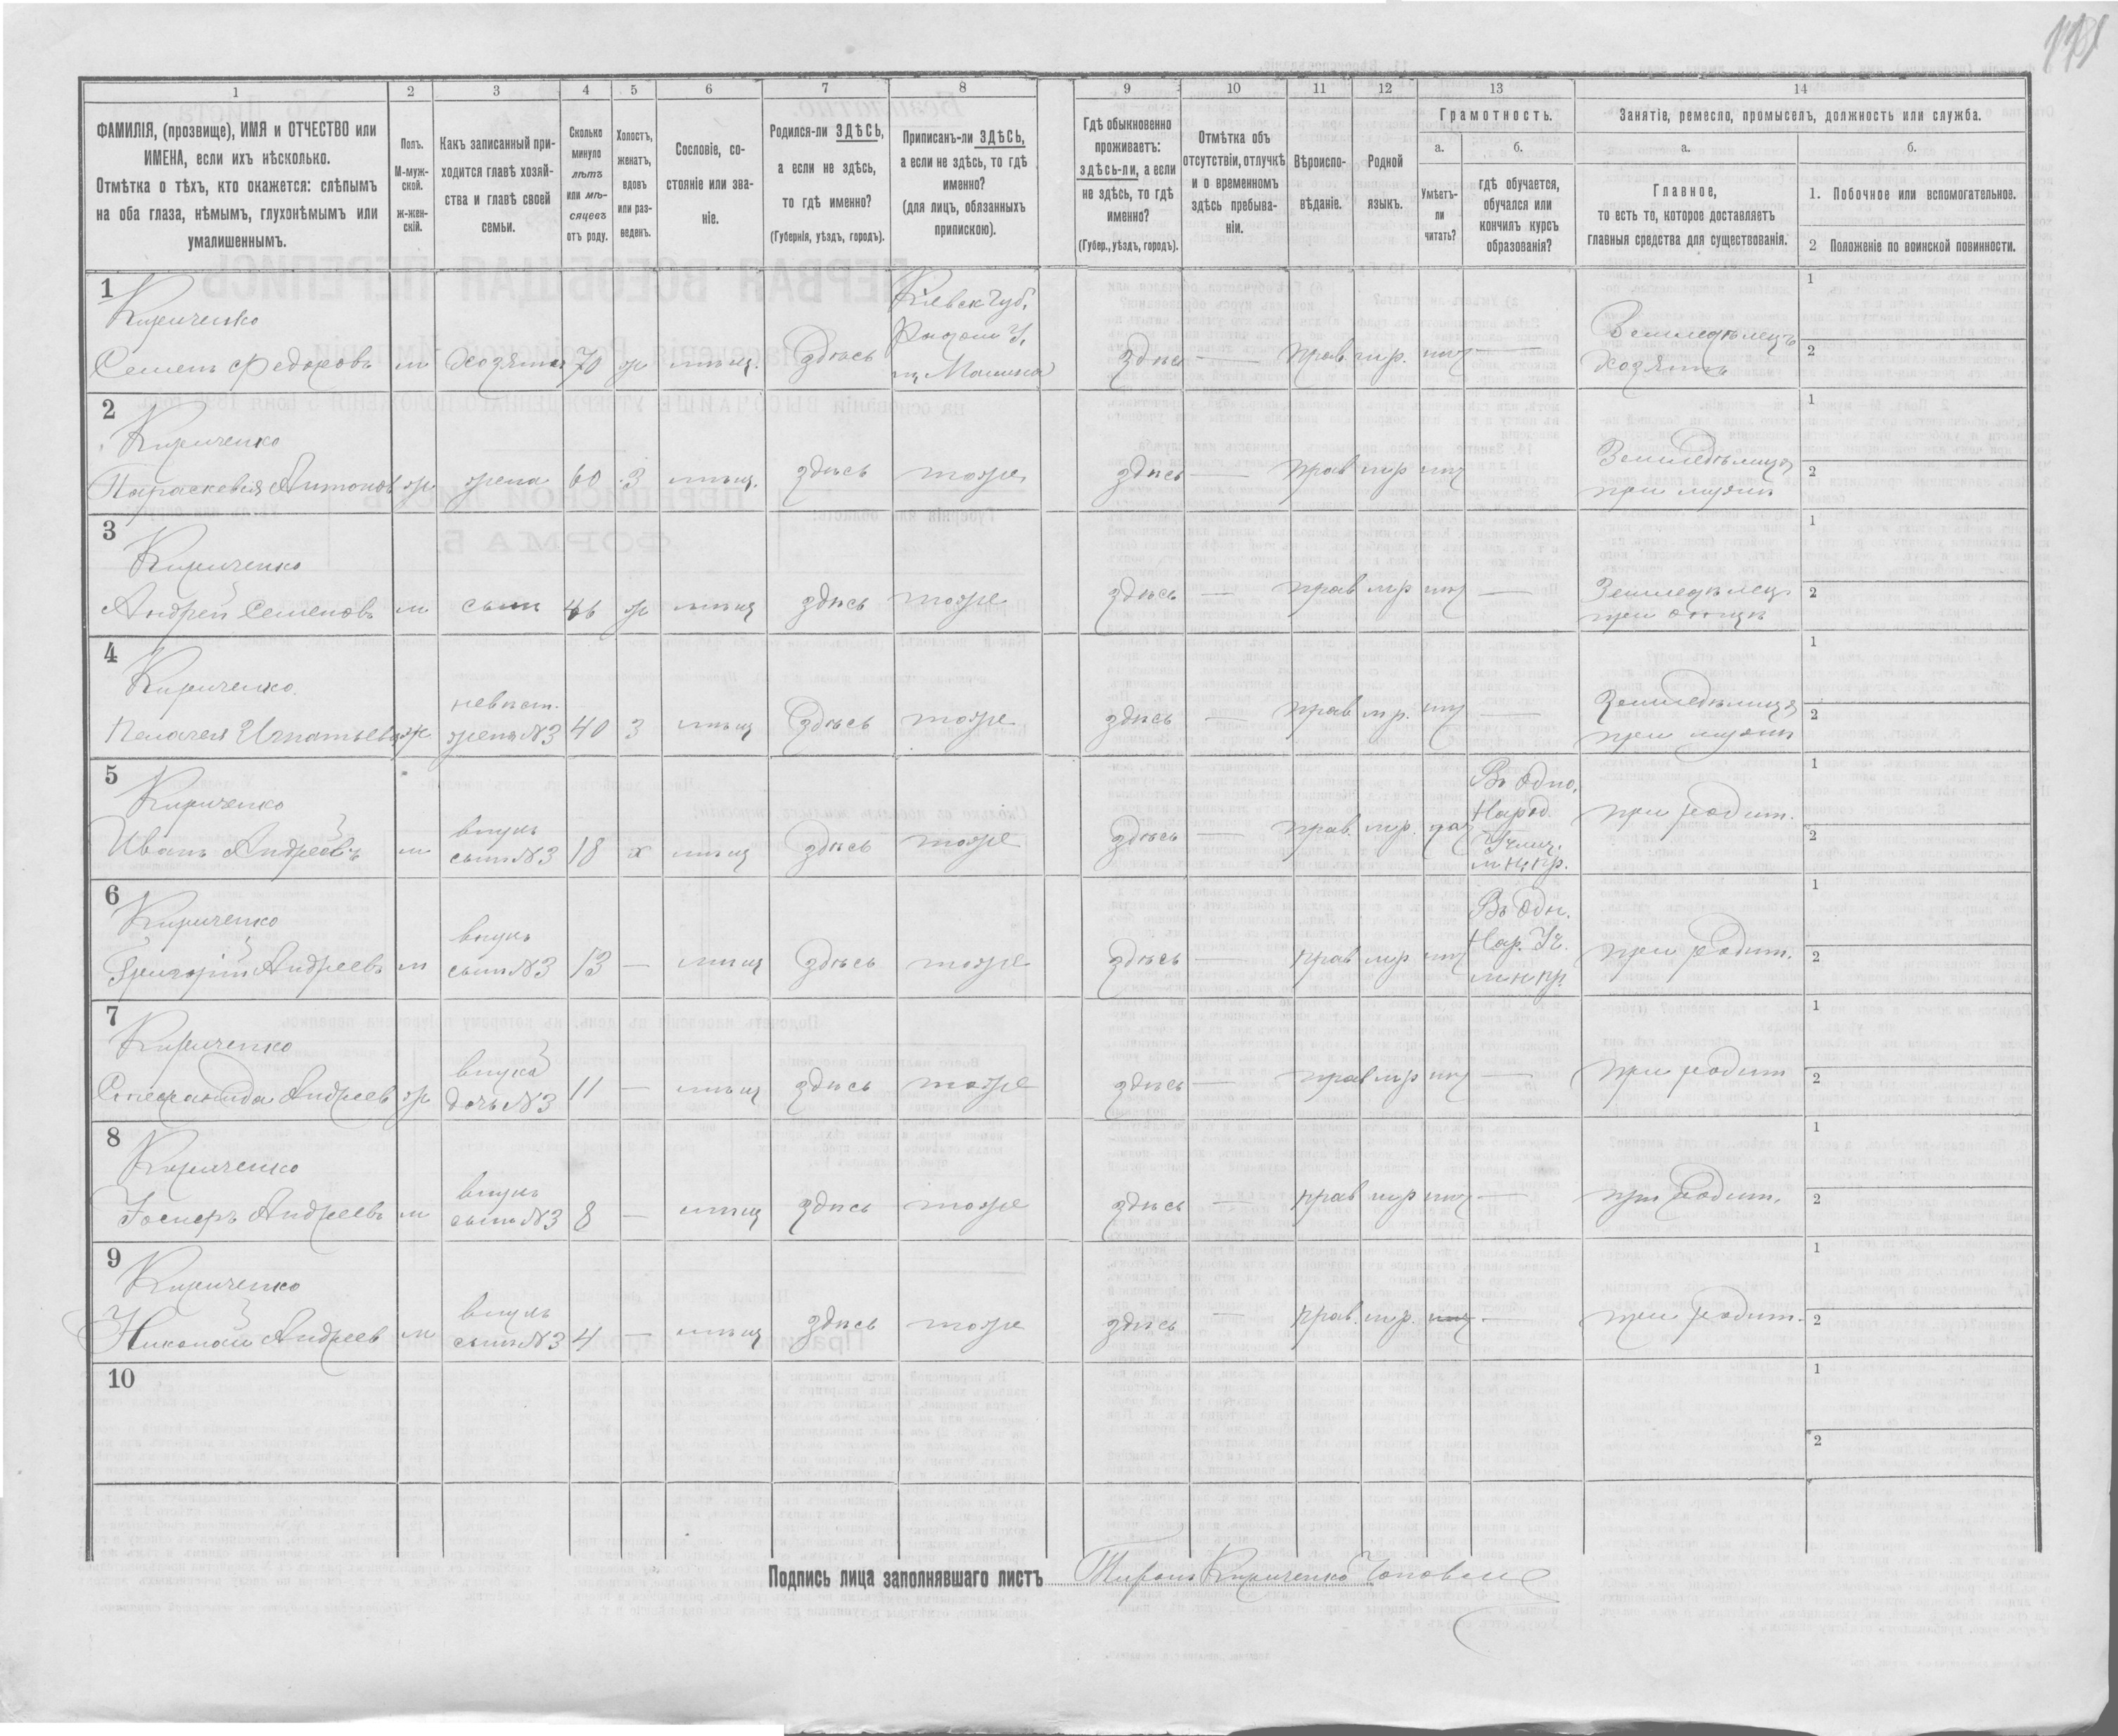 1
2
3
4
5
6
7
8
9
10
11
12
13
14
ФАМИЛІЯ, (прозвище), ИМЯ и ОТЧЕСТВО или
ИМЕНА, если ихъ нѣсколько.
Отмѣтка о тѣхъ, кто окажется: слѣпымъ
на оба глаза, нѣмымъ, глухонѣмымъ или
умалишеннымъ.
Полъ.
М-муж-
ской.
ж-жен-
скій.
Какъ записанный при-
ходится главѣ хозяй-
ства и главѣ своей
семьи.
Сколько
минуло
лѣтъ
или мѣ-
сяцевъ
отъ роду.
Холостъ,
женатъ,
вдовъ
или раз-
веденъ.
Сословіе, со-
стояніе или зва-
ніе.
Родился-ли ЗДѢСЬ,
а если не здѣсь,
то гдѣ именно?
(Губернія, уѣздъ, городъ).
Приписанъ-ли ЗДѢСЬ,
а если не здѣсь, то гдѣ
именно?
(для лицъ, обязанныхъ
припискою).
Гдѣ обыкновенно
проживаетъ:
здѣсь-ли, а если
не здѣсь, то гдѣ
именно?
(Губер., уѣздъ, городъ).
Отмѣтка объ
отсутствіи, отлучкѣ
и о временномъ
здѣсь пребыва-
ніи.
Вѣроиспо-
вѣданіе.
Родной
языкъ.
Грамотность.
а.
Умѣетъ-
ли
читать?
б.
гдѣ обучается,
обучался или
кончилъ курсъ
образованія?
Занятіе, ремесло, промыселъ, должность или служба.
а.
Главное,
то есть то, которое доставляетъ
главныя средства для существованія.
б.
1. Побочное или вспомогательное.
2 Положеніе по воинской повинности.
1
Кириченко
Семенъ Федоровъ м Хозяинъ 70 ж мѣщ. Здѣсь
Кіевск Губ.
Радом У.
м. Малина
здѣсь — прав мр. нѣт —
Земледѣлецъ
хозяинъ
1
2
2
Кириченко
Параскевия Антонов ж жена 60 З мѣщ. здѣсь тоже здѣсь — прав мр нѣт
Земледѣлица
при мужѣ
1
2
3
Кириченко
Андрей Семеновъ м сынъ 46 ж мѣщ здѣсь тоже здѣсь — прав мр нѣт —
Земледѣлец
при отцѣ
1
2
4
Кириченко
Пелагея Игнатьева ж
невѣст.
жена №3 40 З мѣщ Здѣсь тоже здѣсь — прав мр. нѣт —
Земледѣлица
при мужѣ
1
2
5
Кириченко
Иванъ Андреевъ м
внукъ
сынъ №3 18 х мѣщ Здѣсь тоже здѣсь — прав. мр. да
Въ Одно.
Народ.
Училищ.
м н. пр.
при родит.
1
2
6
Кириченко
Григорій Андреевъ м
внукъ
сынъ №3 13 — мѣщ Здѣсь тоже здѣсь — прав мр нѣт
Въ Одн.
Нар. Уч.
м н пр.
при родит.
1
2
7
Кириченко
Степанида Андреев ж
внука
дочь №3 11 — мѣщ здѣсь тоже здѣсь — прав мр нѣт —
при родит
1
2
8
Кириченко
Іосифъ Андреевъ м
внукъ
сынъ №3 8 — мѣщ здѣсь тоже здѣсь — прав мр нѣт —
при родит.
1
2
9
Кириченко
Николай Андреев м
внукъ
сынъ №3 4 — мѣщ здѣсь тоже здѣсь — прав. мр. нѣт —
при родит.
1
2
10
1
2
Подпись лица заполнявшаго листъ Кириченко